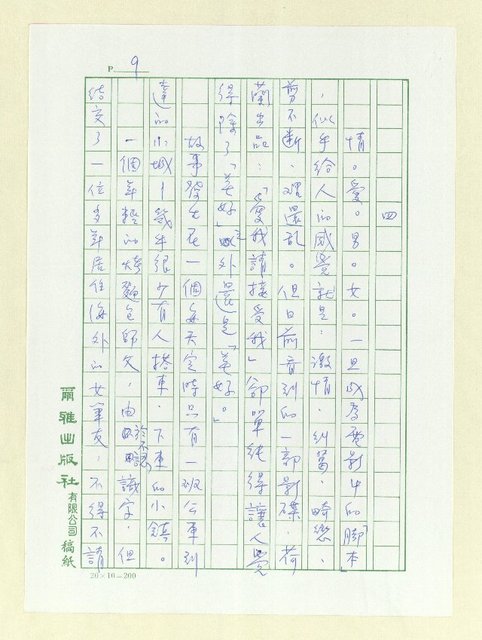 P 9
四
情。愛。男。女。一旦成為電影中的「腳本」
，似乎給人的感覺就是：激情、糾葛、畸戀、
剪不斷、理還亂。但日前看到的一部影碟，荷
蘭出品：「愛我請接受我」卻單純得讓人覺
得除了「美好」之外還是「美好」。
故事發生在一個每天定時只有一班公車到
達的小城—幾乎很少有人搭車、下車的小鎮。
一個年輕的烤麵包師父，由於不認識字，但
結交了一位多年居住海外的女筆友，不得不請
爾雅出版社有限公司稿紙
20×10=200